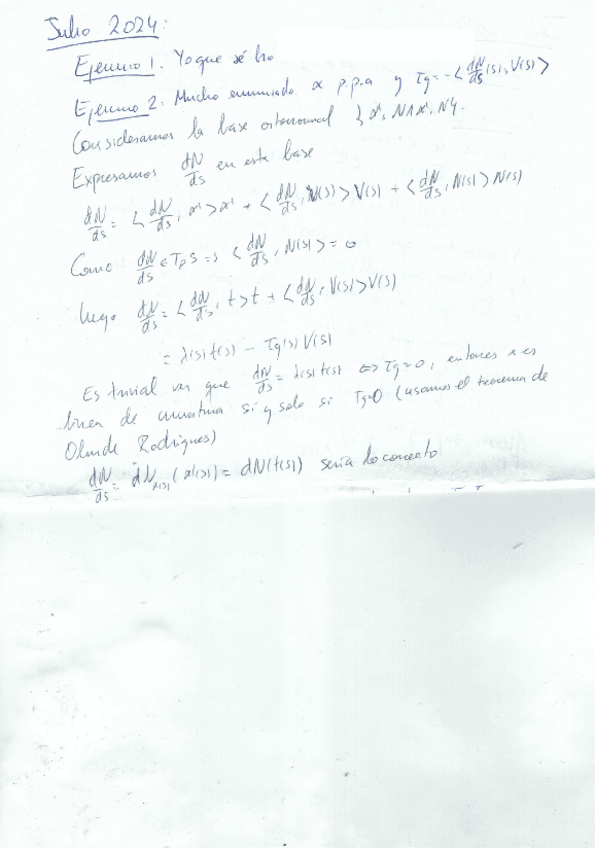 Julio 2024:
Ejercicio 1. Yo que sé bro
Ejercicio 2: Mucho enunciado α p.p.a y τg = -<dN/ds(s), V(s)>
Consideramos la base ortonormal {α', N∧α', N}.
Expresamos dN/ds en esta base
dN/ds = <dN/ds, α'>α' + <dN/ds, V(s)>V(s) + <dN/ds, N(s)>N(s)
Como dN/ds ∈ TpS => <dN/ds, N(s)> = 0
luego dN/ds = <dN/ds, t>t + <dN/ds, V(s)>V(s)
= λ(s)t(s) - τg(s)V(s)
Es trivial ver que dN/ds = λ(s)t(s) <=> τg=0, entonces α es
línea de curvatura si y solo si τg=0 (usamos el teorema de
Olinde Rodrigues)
dN/ds = dNα(s)(α'(s)) = dN(t(s)) sería lo correcto